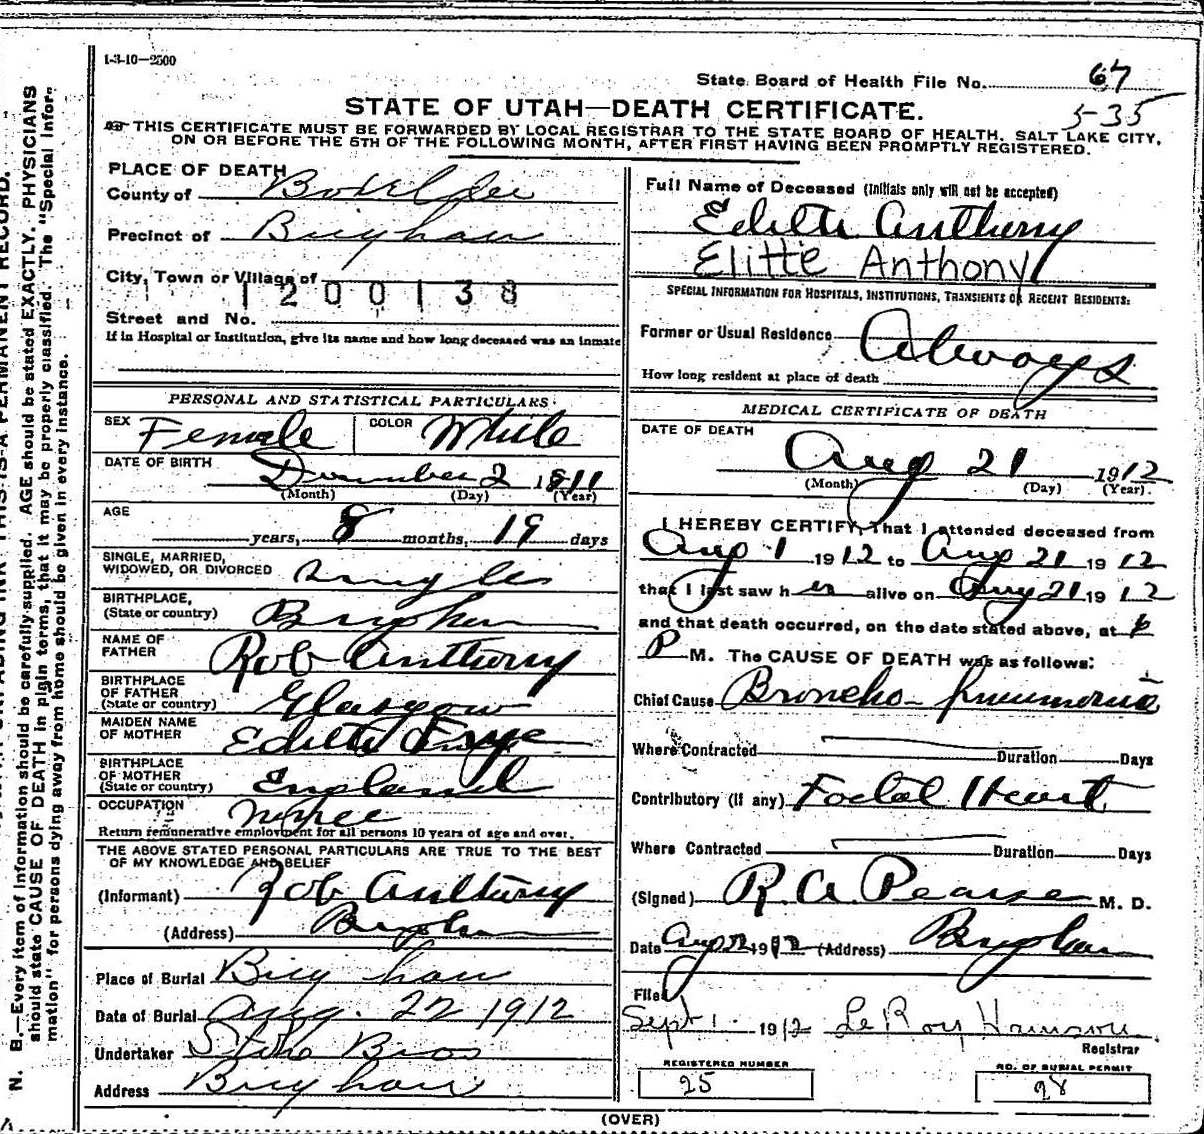 1-3-10-2500
State Board of Health File No. 67
5-35
STATE OF UTAH—DEATH CERTIFICATE.
THIS CERTIFICATE MUST BE FORWARDED BY LOCAL REGISTRAR TO THE STATE BOARD OF HEALTH, SALT LAKE CITY,
ON OR BEFORE THE 5TH OF THE FOLLOWING MONTH, AFTER FIRST HAVING BEEN PROMPTLY REGISTERED.
PLACE OF DEATH
County of Box Elder
Precinct of Brigham
City, Town or Village of
1200138
Street and No.
If in Hospital or Institution, give its name and how long deceased was an inmate
PERSONAL AND STATISTICAL PARTICULARS.
SEX Female COLOR White
DATE OF BIRTH December 2 1911
(Month) (Day) (Year)
AGE
years, 8 months, 19 days
SINGLE, MARRIED,
WIDOWED, OR DIVORCED Single
BIRTHPLACE,
(State or country) Brigham
NAME OF
FATHER Rob Anthony
BIRTHPLACE
OF FATHER
(State or country) Glasgow
MAIDEN NAME
OF MOTHER Edith Frye
BIRTHPLACE
OF MOTHER
(State or country) England
OCCUPATION
Return remunerative employment for all persons 10 years of age and over.
THE ABOVE STATED PERSONAL PARTICULARS ARE TRUE TO THE BEST
OF MY KNOWLEDGE AND BELIEF
(Informant) Rob Anthony
(Address) Brigham
Place of Burial Brigham
Date of Burial Aug. 22 1912
Undertaker Bros
Address Brigham
Full Name of Deceased (Initials only will not be accepted)
Edith Anthony
Elitte Anthony
SPECIAL INFORMATION FOR HOSPITALS, INSTITUTIONS, TRANSIENTS OR RECENT RESIDENTS:
Former or Usual Residence Always
How long resident at place of death
MEDICAL CERTIFICATE OF DEATH
DATE OF DEATH
Aug 21 1912
(Month) (Day) (Year).
I HEREBY CERTIFY, That I attended deceased from
Aug 1 1912 to Aug 21 1912
that I last saw her alive on Aug 21 1912
and that death occurred, on the date stated above, at 6
P M. The CAUSE OF DEATH was as follows:
Chief Cause Broncho-Pneumonia
Where Contracted Duration Days
Contributory (if any) Foetal Heart
Where Contracted Duration Days
(Signed) R. A. Pearse M. D.
Date Aug 22 1912 (Address) Brigham
Filed
Sept 1 1912 LeRoy
Registrar
REGISTERED NUMBER
25
NO. OF BURIAL PERMIT
28
(OVER)
N. B.—Every item of information should be carefully supplied. AGE should be stated EXACTLY. PHYSICIANS
should state CAUSE OF DEATH in plain terms, that it may be properly classified. The "Special Infor-
mation" for persons dying away from home should be given in every instance.